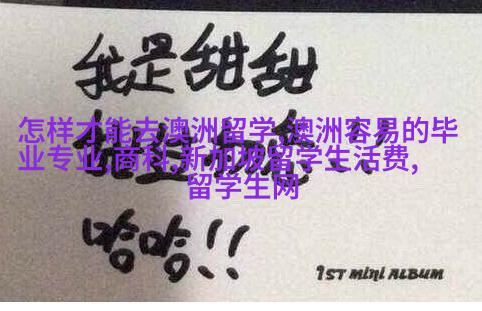 我是甜甜
怎样才能去澳洲留学,澳洲容易的毕
业专业,商科,新加坡留学生活费,
留学生网
哈哈!!
1ST MINI ALBUM